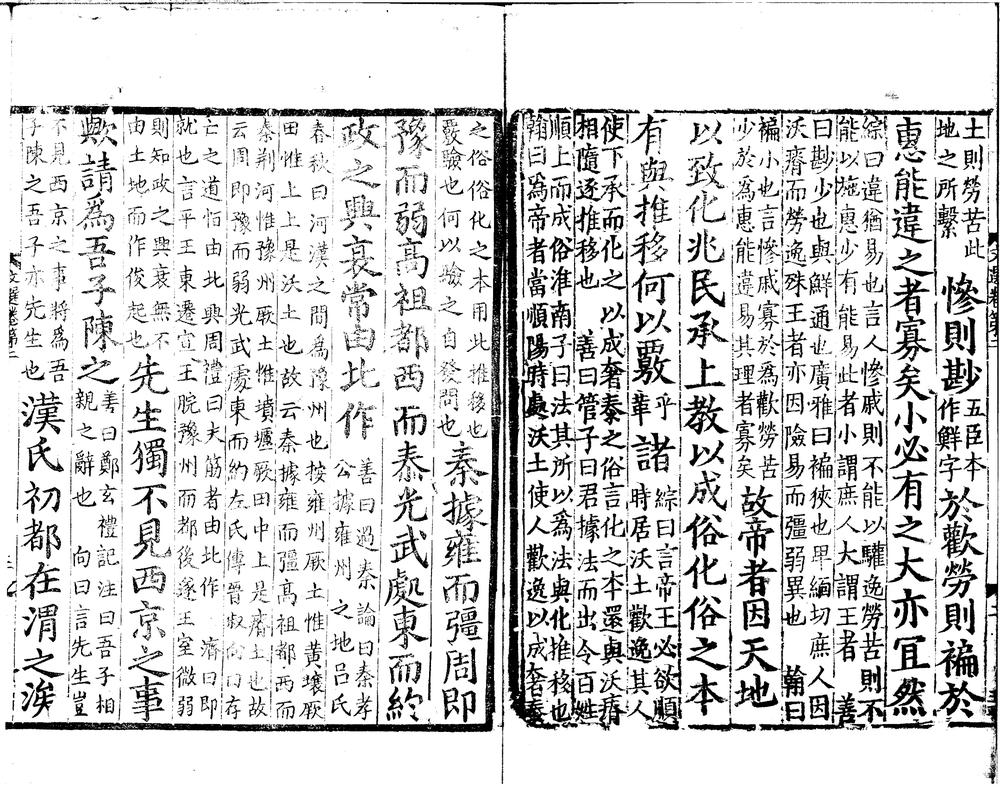 土則勞苦此
地之所繫
慘則尠
五臣本
作鮮字
於歡勞則褊於
惠能違之者寡矣小必有之大亦宜然
綜曰違猶易也言人慘戚則不能以驩逸勞苦則不
能以施惠少有能易此者小謂庶人大謂王者 善
曰尠少也與鮮通也廣雅曰褊狹也卑緬切庶人因
沃瘠而勞逸殊王者亦因險易而彊弱異也 翰曰
褊小也言慘戚寡於爲歡勞苦
少於爲惠能違易其理者寡矣
故帝者因天地
以致化兆民承上教以成俗化俗之本
有與推移何以覈
乎
華
諸
綜曰言帝王必欲順
時居沃土歡逸其人
使下承而化之以成奢泰之俗言化之本還與沃瘠
相隨逐推移也 善曰管子曰君據法而出令百姓
順上而成俗淮南子曰法其所以爲法與化推移也
翰曰爲帝者當順陽時處沃土使人歡逸以成奢泰
之俗俗化之本用此推移也
覈驗也何以驗之自發問也
秦據雍而彊周即
豫而弱高祖都西而泰光武處東而約
政之興衰常由此作
善曰過秦論曰秦孝
公據雍州之地呂氏
春秋曰河漢之間爲豫州也按雍州厥土惟黃壤厥
田惟上上是沃土也故云秦據雍而彊高祖都西而
泰荆河惟豫州厥土惟墳壚厥田中上是瘠土也故
云周即豫而弱光武處東而約左氏傳晉叔向曰存
亡之道恒由此興周禮曰夫筋者由此作 濟曰即
就也言平王東遷宣王脫豫州而都後遂王室微弱
則知政之興衰無不
由土地而作俊起也
先生獨不見西京之事
歟請爲吾子陳之
善曰鄭玄禮記注曰吾子相
親之辭也 向曰言先生豈
不見西京之事將爲吾
子陳之吾子亦先生也
漢氏初都在渭之涘